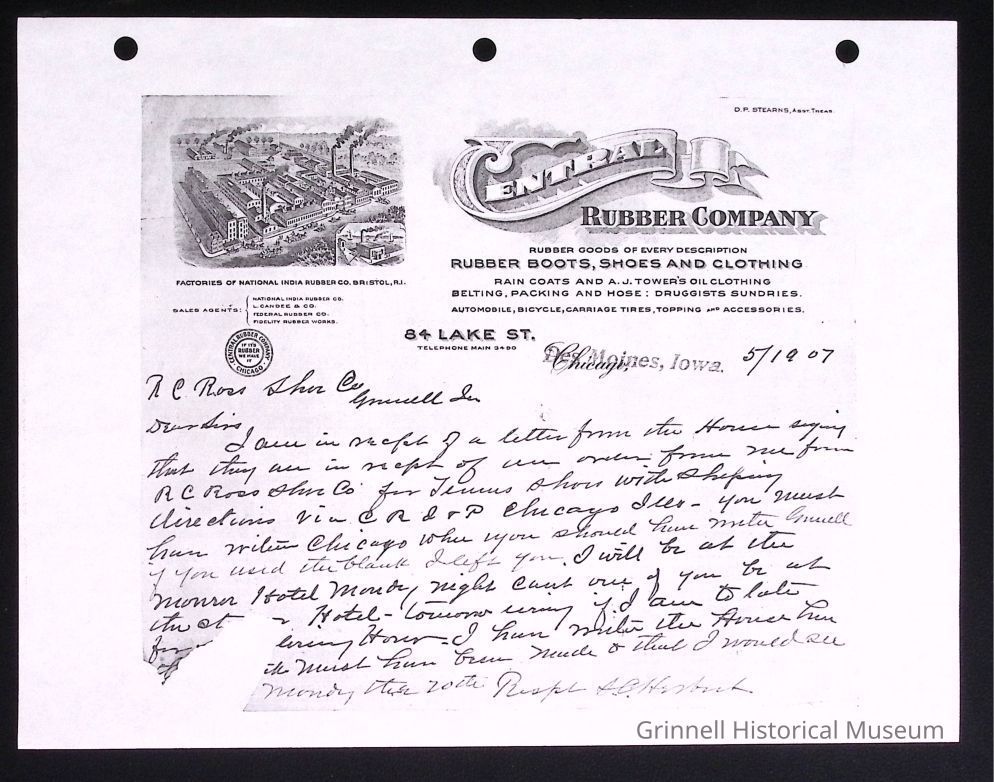 D.P. STEARNS, ASST. TREAS.
CENTRAL
RUBBER COMPANY
RUBBER GOODS OF EVERY DESCRIPTION
RUBBER BOOTS, SHOES AND CLOTHING
RAIN COATS AND A.J. TOWER'S OIL CLOTHING
BELTING, PACKING AND HOSE: DRUGGISTS SUNDRIES.
AUTOMOBILE, BICYCLE, CARRIAGE TIRES, TOPPING AND ACCESSORIES.
FACTORIES OF NATIONAL INDIA RUBBER CO. BRISTOL, R.I.
SALES AGENTS:
NATIONAL INDIA RUBBER CO.
L. CANDEE & CO.
FEDERAL RUBBER CO.
FIDELITY RUBBER WORKS.
CENTRAL RUBBER COMPANY CHICAGO
IF IT'S RUBBER WE HAVE IT
84 LAKE ST.
TELEPHONE MAIN 3490
Chicago,
Des Moines, Iowa. 5/19 07
R C Ross Shoe Co
Grinnell Ia
Dear Sirs
I am in receipt of a letter from the House saying
that they are in receipt of an order from me from
R C Ross Shoe Co for Tennis Shoes with Shiping
directions via C R I & P Chicago Ills - you must
have writen Chicago when you should have writen Grinnell
if you used the blank I left you. I will be at the
Monroe Hotel Monday night cant one of you be at
the Hotel - tomorrow if I am to late
I have writen the House
must have been made & that I would see
Monday the 20th Respt
Grinnell Historical Museum